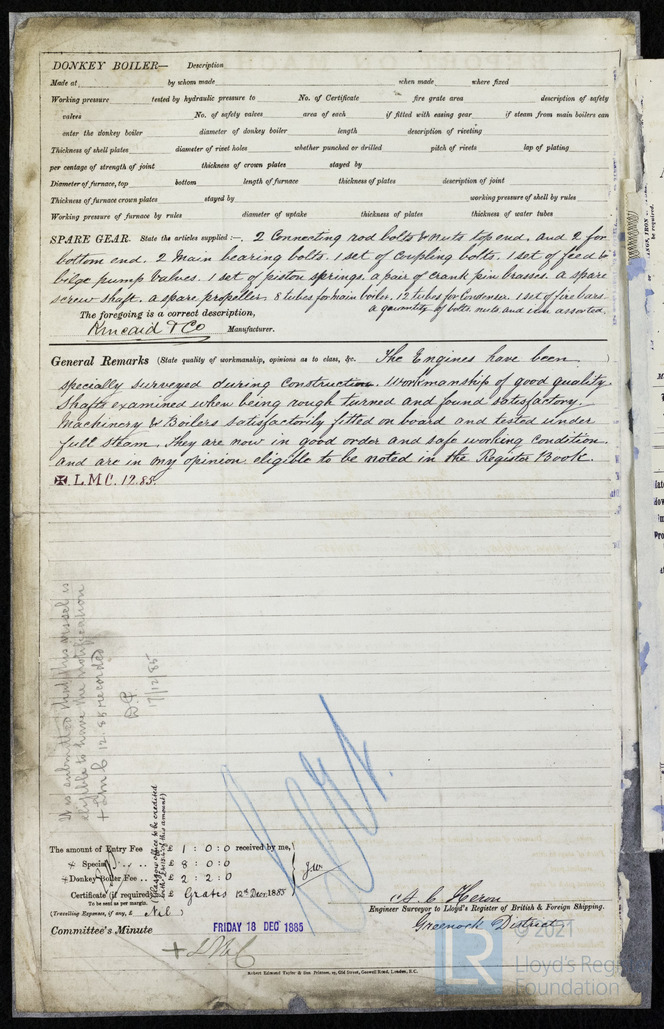 DONKEY BOILER— Description
Made at by whom made when made where fixed
Working pressure tested by hydraulic pressure to No. of Certificate fire grate area description of safety
valves No. of safety valves area of each if fitted with easing gear if steam from main boilers can
enter the donkey boiler diameter of donkey boiler length description of riveting
Thickness of shell plates diameter of rivet holes whether punched or drilled pitch of rivets lap of plating
per centage of strength of joint thickness of crown plates stayed by
Diameter of furnace, top bottom length of furnace thickness of plates description of joint
Thickness of furnace crown plates stayed by working pressure of shell by rules
Working pressure of furnace by rules diameter of uptake thickness of plates thickness of water tubes
SPARE GEAR. State the articles supplied:— 2 Connecting rod bolts & nuts top end, and 2 for
bottom end, 2 Main bearing bolts, 1 set of Coupling bolts, 1 set of feed &
bilge pump valves, 1 set of piston springs, a pair of crank pin brasses, a spare
screw shaft, a spare propeller, 8 tubes for main boiler, 12 tubes for Condenser, 1 set of fire bars
a quantity of bolts, nuts and iron assorted.
The foregoing is a correct description,
Kincaid & Co Manufacturer.
General Remarks (State quality of workmanship, opinions as to class, &c. The Engines have been
specially surveyed during construction. Workmanship of good quality.
Shafts examined when being rough turned and found satisfactory.
Machinery & Boilers satisfactorily fitted on board and tested under
full steam. They are now in good order and safe working condition
and are in my opinion eligible to be noted in the Register Book.
✠ L.M.C. 12.85.
It is submitted that this vessel is
eligible to have the notification
+ LMC 12.85 recorded
17/12/85
The amount of Entry Fee . . £ 1 : 0 : 0 received by me,
Special . . . . £ 8 : 0 : 0
Donkey Boiler Fee . . £ 2 : 2 : 0
Certificate (if required) £ Gratis 12th Decr 1885
To be sent as per margin.
(Travelling Expenses, if any, £ Nil )
A. C. Heron
Engineer Surveyor to Lloyd's Register of British & Foreign Shipping.
Greenock District
Committee's Minute FRIDAY 18 DEC 1885
+ LMC
© 2021
LR Lloyd's Regi
Foundation